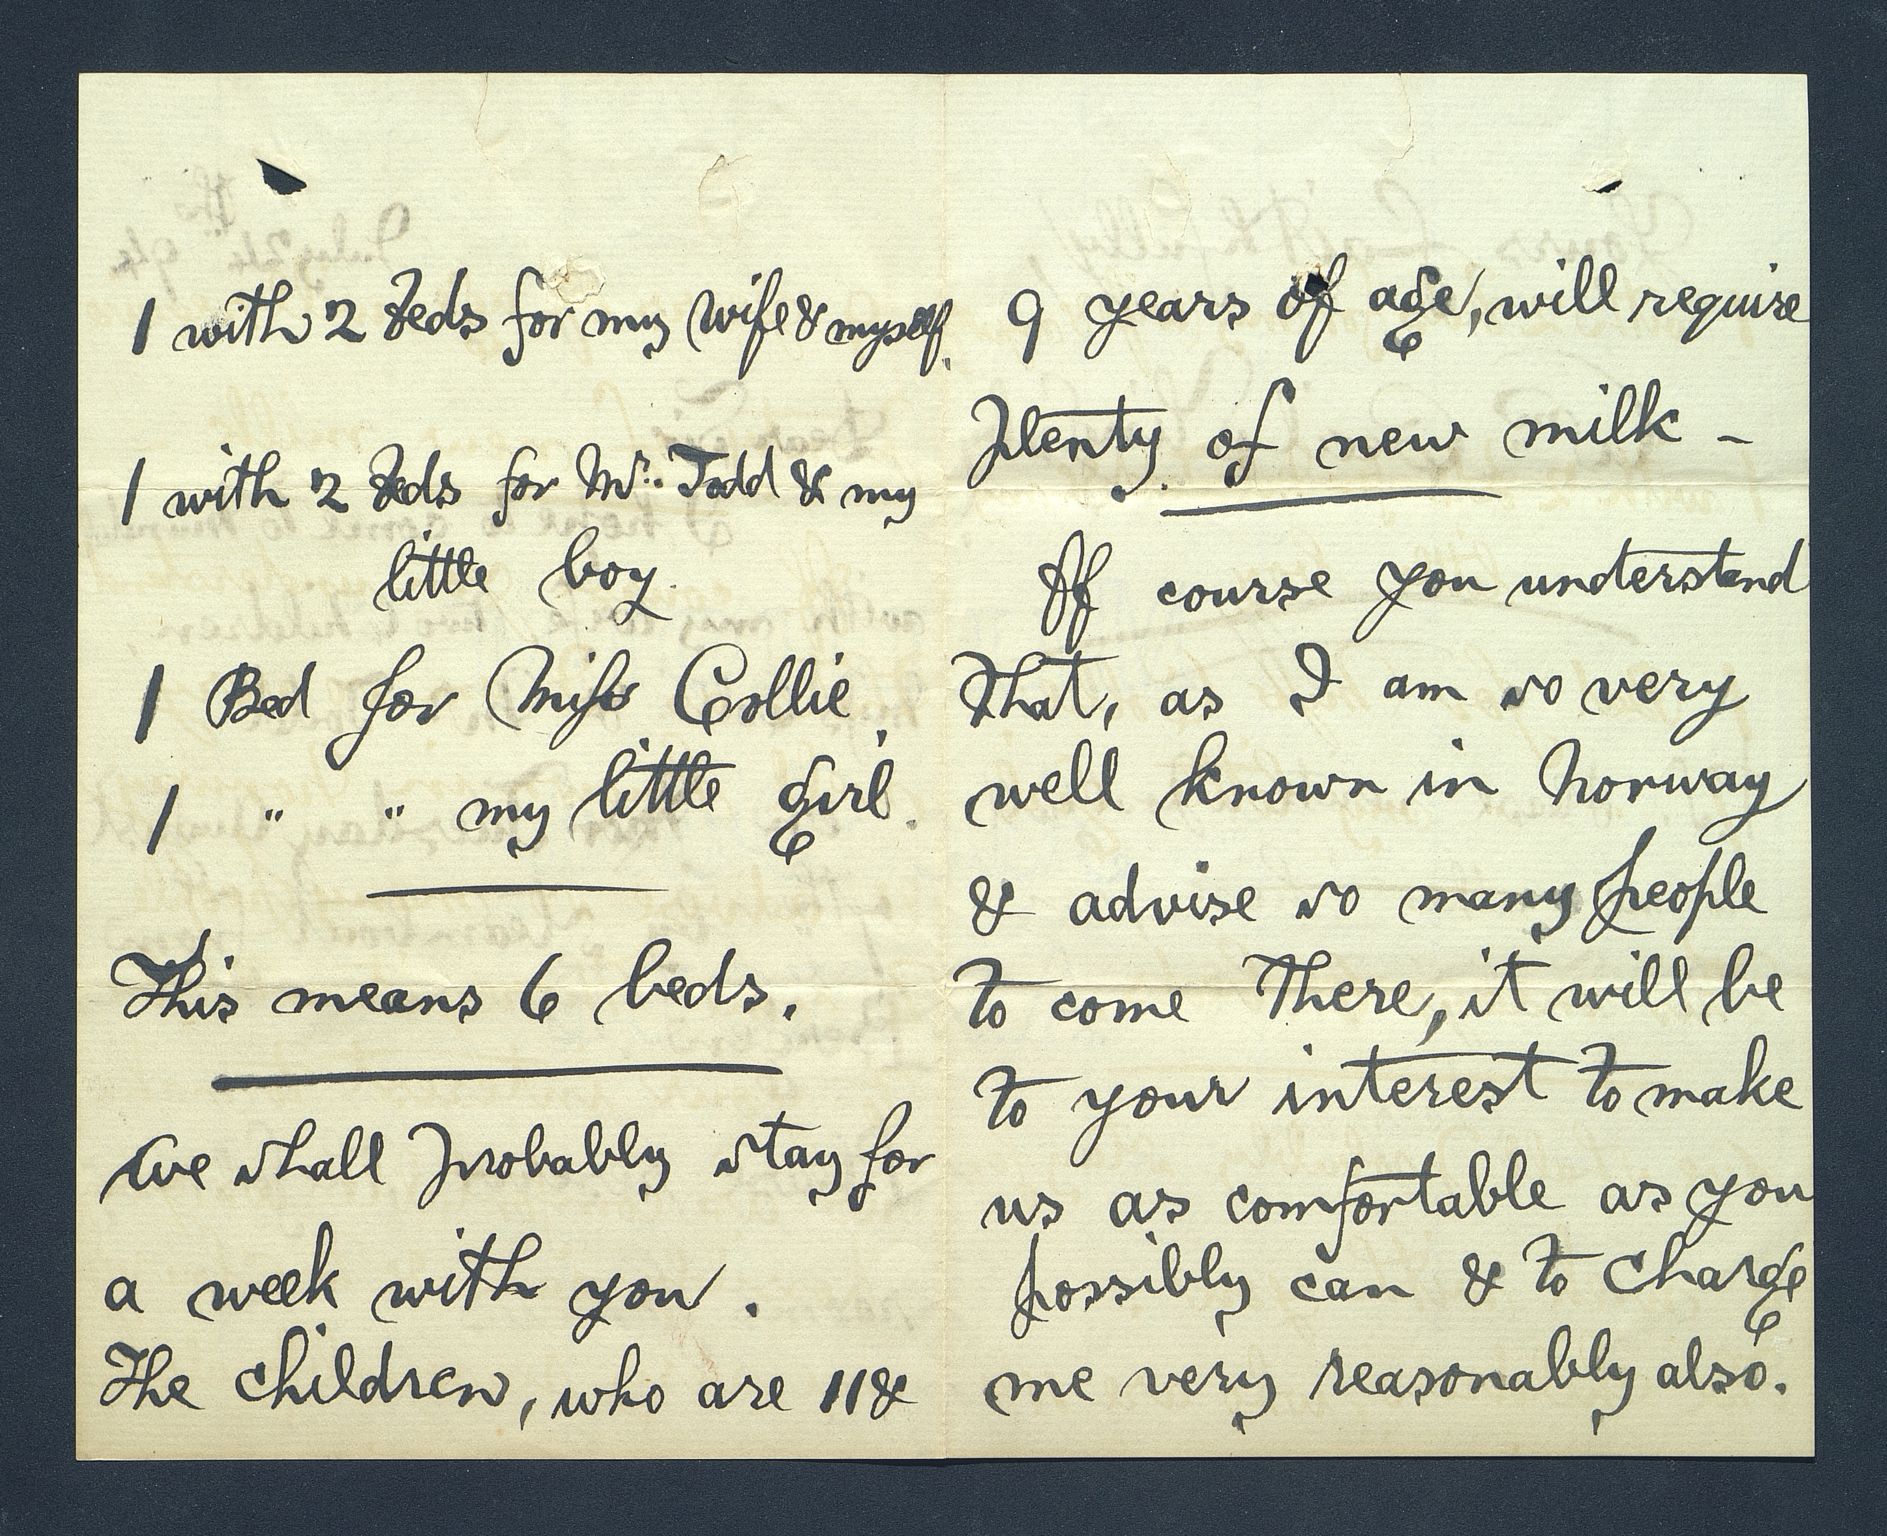 1 with 2 Beds for my Wife & myself.
1 with 2 Beds for Mr. Todd & my
little boy.
1 Bed for Miss Collie,
1 " " my little girl.
This means 6 beds.
We shall probably stay for
a week with you.
The children, who are 11 &
9 years of age, will require
plenty of new milk -
Of course you understand
that, as I am so very
well known in Norway
& advise so many people
to come there, it will be
to your interest to make
us as comfortable as you
possibly can & to charge
me very reasonably also.